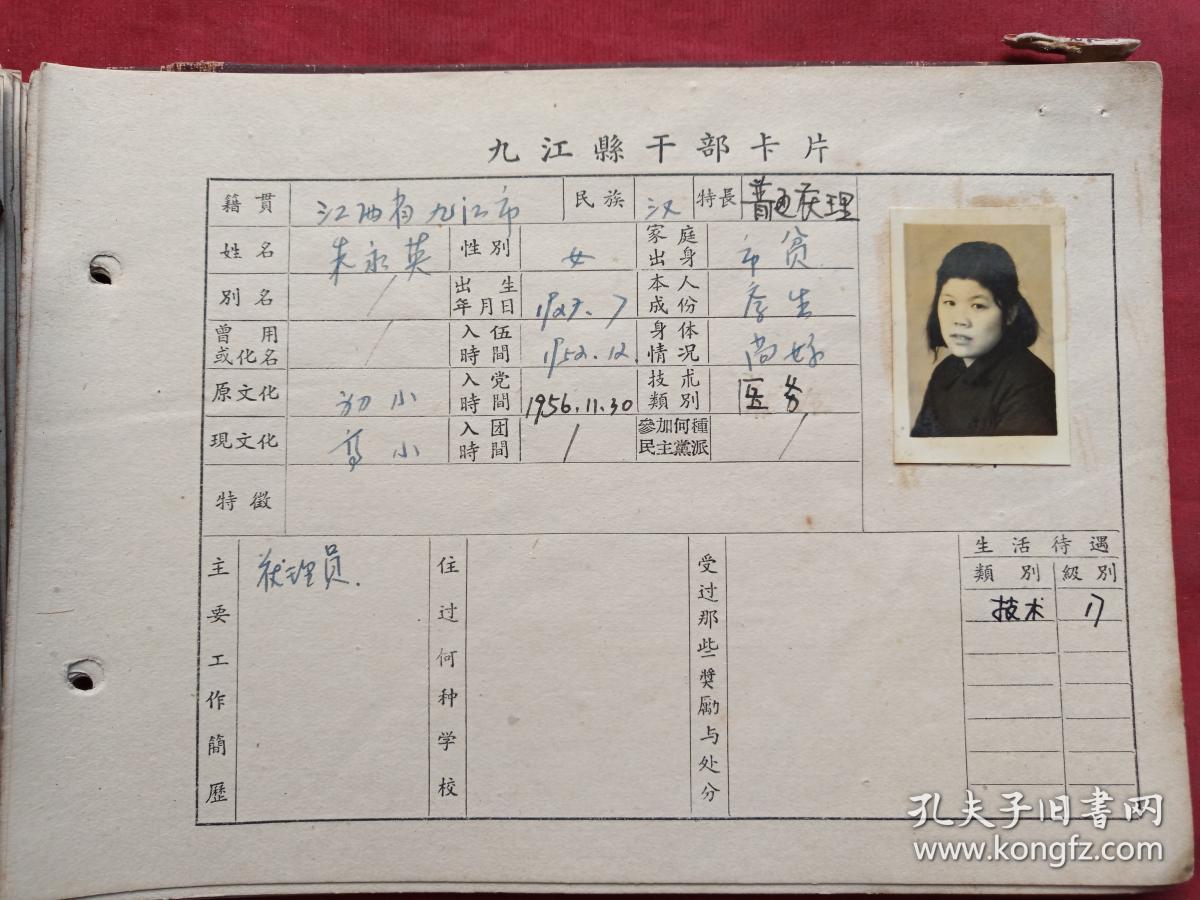 九江縣干部卡片
籍貫 江西省九江市 民族 汉 特長 普通护理
姓名 朱永英 性别 女 家庭出身 市贫
別名 / 出生年月日 1927.7 本人成份 学生
曾用或化名 / 入伍時間 1952.12 身体情况 尚好
原文化 初小 入党時間 1956.11.30 技朮類別 医务
現文化 高小 入团時間 / 參加何種民主黨派 /
特徵
主要工作簡歷 护理员.
住过何种学校
受过那些獎勵与处分
生活待遇
類別 級別
技术 17
孔夫子旧书网
www.kongfz.com